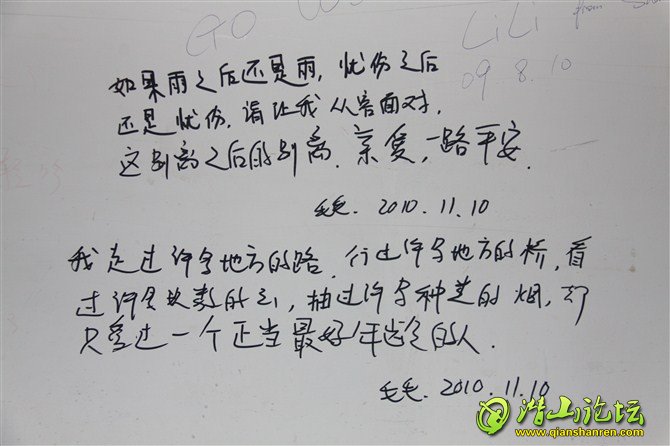 GO
LiLi from
09 8.10
如果雨之后还是雨,忧伤之后
还是忧伤.请让我从容面对,
这别离之后的别离.亲爱,一路平安.
毛毛. 2010.11.10
我走过许多地方的路.行过许多地方的桥,看
过许多次数的云,抽过许多种类的烟,却
只爱过一个正当最好年龄的人.
毛毛. 2010.11.10
潜山论坛
www.qianshanren.com